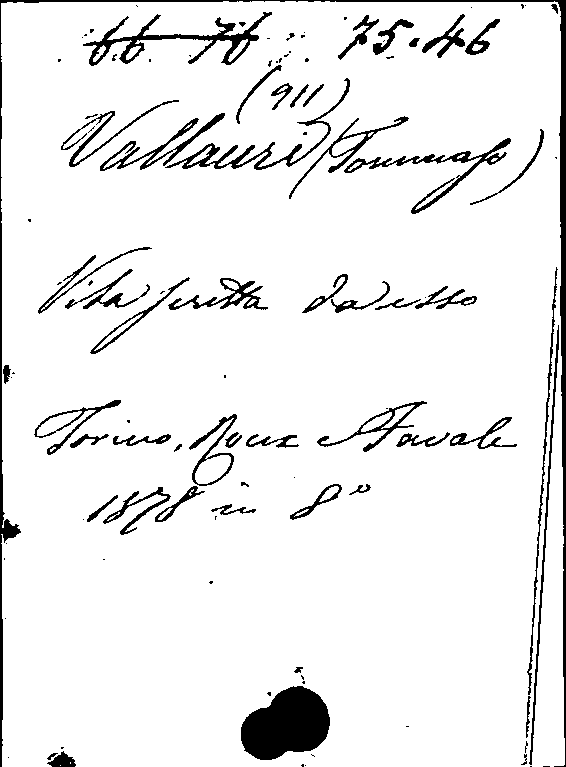 66 76 75.46
(911)
Vallauri (Tommaso)
Vita scritta da esso
Torino, Roux e Favale
1878 in 8°